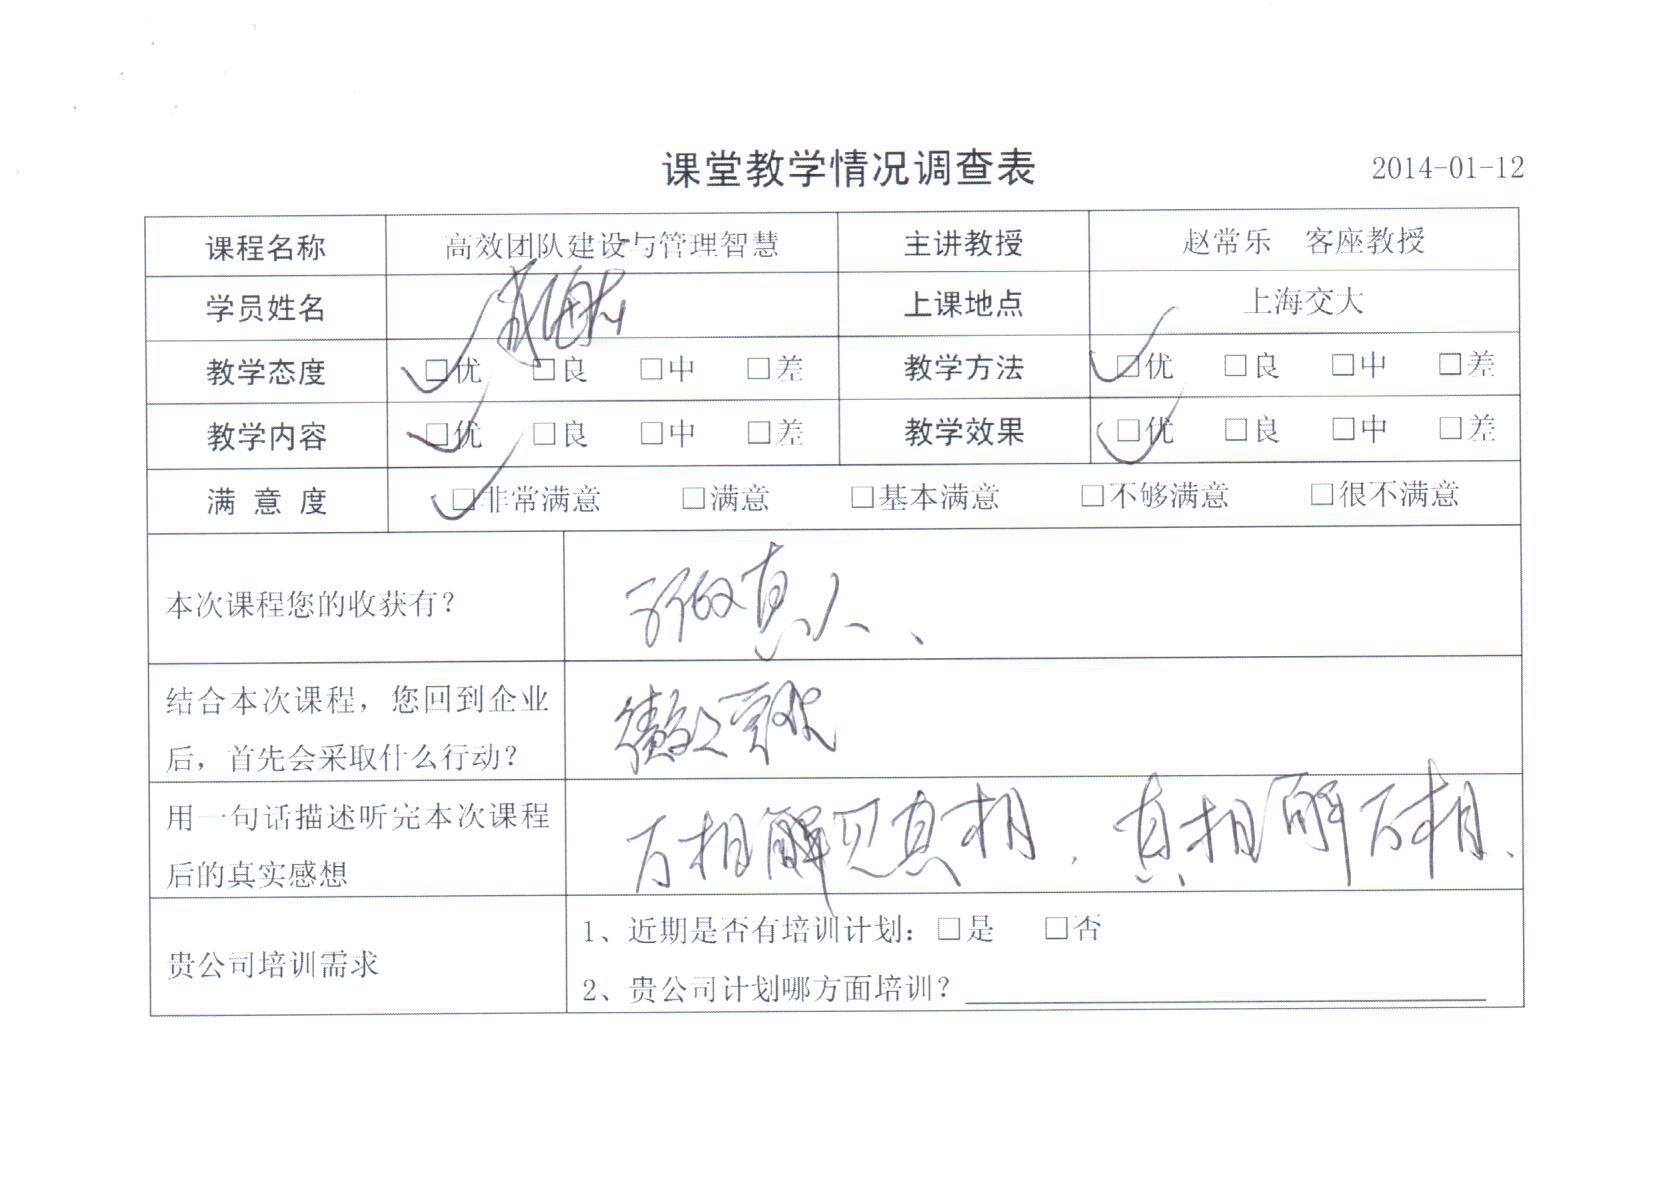 课堂教学情况调查表 2014-01-12
课程名称 高效团队建设与管理智慧 主讲教授 赵常乐 客座教授
学员姓名 上课地点 上海交大
教学态度 □优 □良 □中 □差 教学方法 □优 □良 □中 □差
教学内容 □优 □良 □中 □差 教学效果 □优 □良 □中 □差
满意度 □非常满意 □满意 □基本满意 □不够满意 □很不满意
本次课程您的收获有？ 真人、
结合本次课程，您回到企业
后，首先会采取什么行动？
用一句话描述听完本次课程
后的真实感想
万相解见真相，真相解万相、
贵公司培训需求
1、近期是否有培训计划：□是 □否
2、贵公司计划哪方面培训？